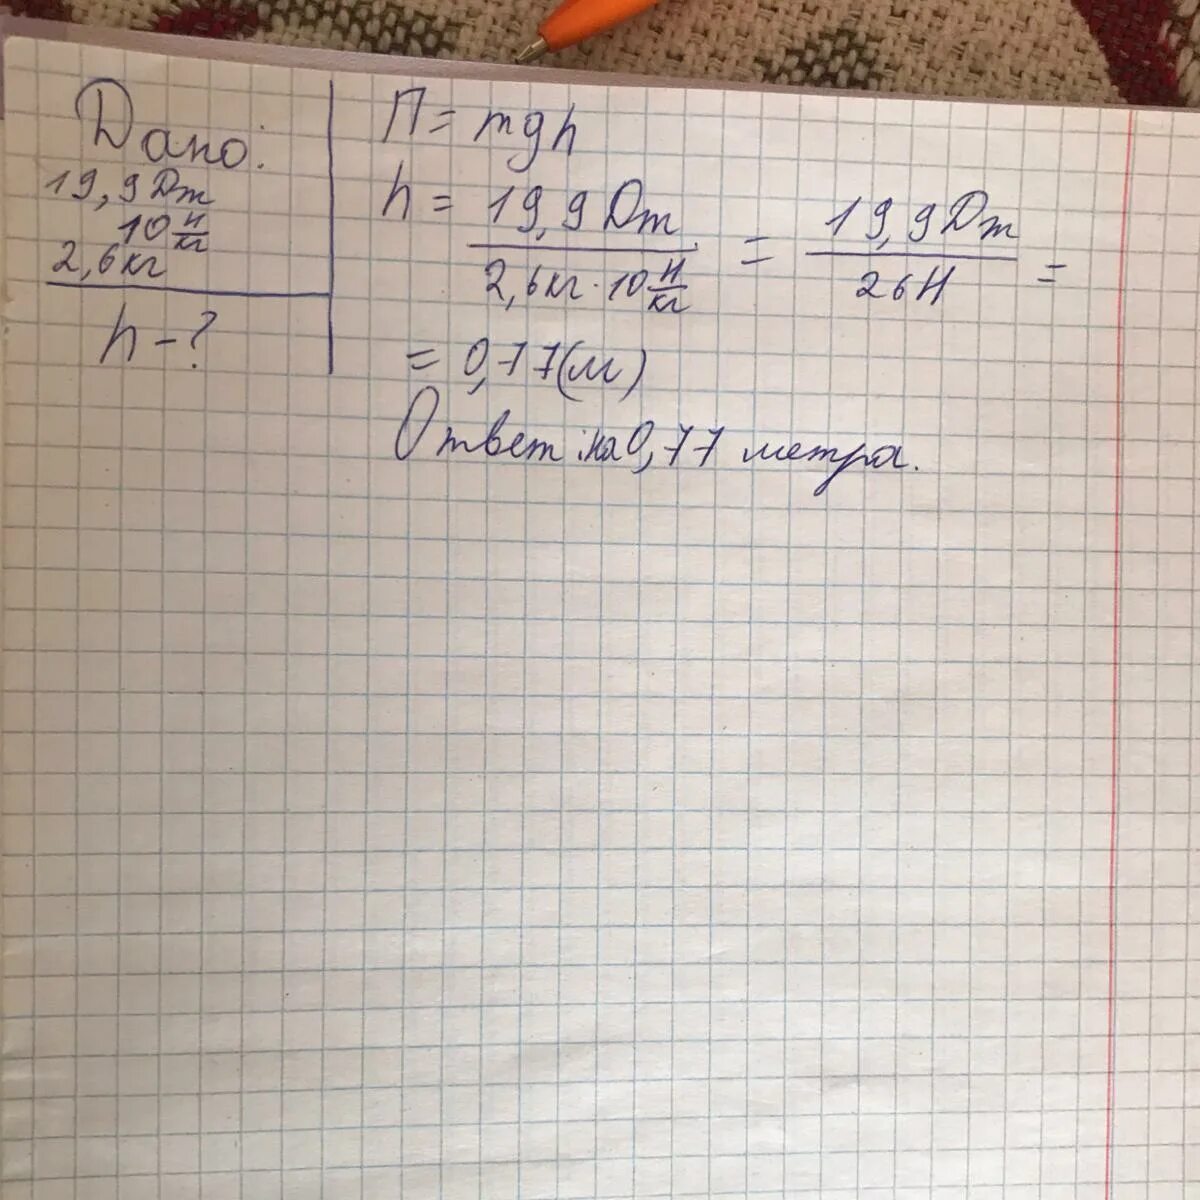 Дано:
19,9 Дж
10 Н/кг
2,6 кг
h - ?
П = mgh
h = 19,9 Дж / 2,6 кг · 10 Н/кг = 19,9 Дж / 26 Н =
= 0,77 (м)
Ответ: на 0,77 метра.